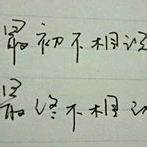 最初不相识
最终不相